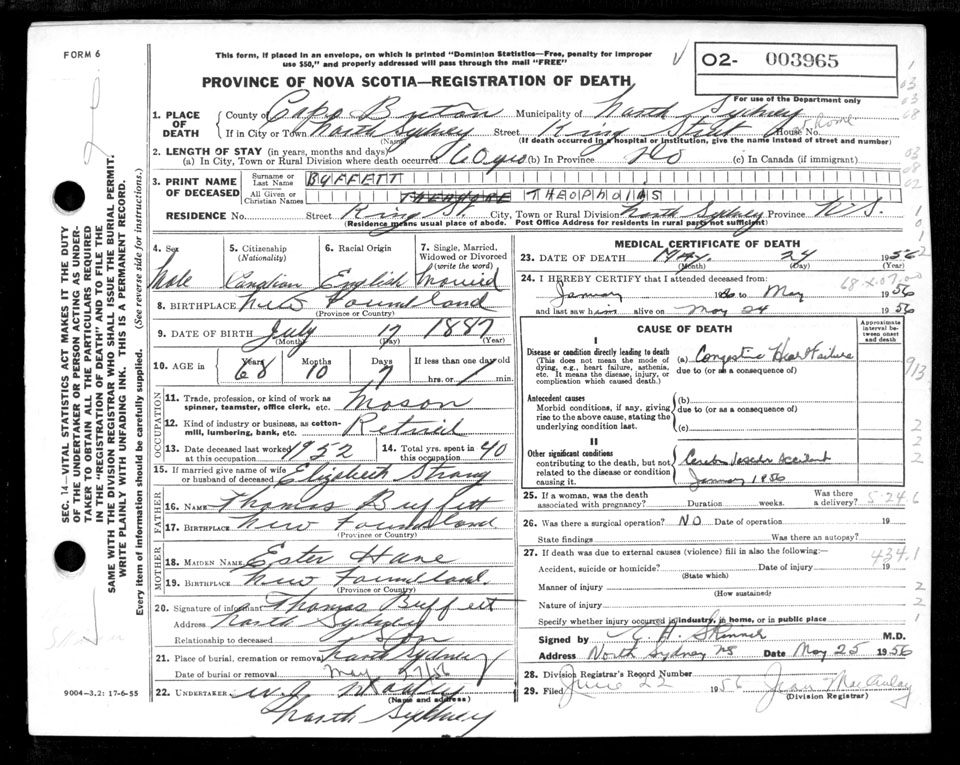 FORM 6
This form, if placed in an envelope, on which is printed "Dominion Statistics—Free, penalty for improper
use $50," and properly addressed will pass through the mail "FREE"
02- 003965
PROVINCE OF NOVA SCOTIA—REGISTRATION OF DEATH
For use of the Department only
1. PLACE OF DEATH
County of Cape Breton Municipality of North Sydney
If in City or Town North Sydney Street King Street House No. home
(Name) (If death occurred in a hospital or institution, give the name instead of street and number)
2. LENGTH OF STAY (in years, months and days)
(a) In City, Town or Rural Division where death occurred 60 yrs (b) In Province do (c) In Canada (if immigrant)
3. PRINT NAME OF DECEASED
Surname or Last Name BUFFETT
All Given or Christian Names THEODORE THEOPHOLIS
RESIDENCE No. Street King St. City, Town or Rural Division North Sydney Province N.S.
(Residence means usual place of abode. Post Office Address for residents in rural parts not sufficient)
4. Sex Male
5. Citizenship (Nationality) Canadian
6. Racial Origin English
7. Single, Married, Widowed or Divorced (write the word) Married
8. BIRTHPLACE New Foundland
(Province or Country)
9. DATE OF BIRTH July 17 1887
(Month) (Day) (Year)
10. AGE in Years 68 Months 10 Days 7 If less than one day old
hrs. or min.
OCCUPATION
11. Trade, profession, or kind of work as spinner, teamster, office clerk, etc. Mason
12. Kind of industry or business, as cotton-mill, lumbering, bank, etc. Retired
13. Date deceased last worked at this occupation 1952 14. Total yrs. spent in this occupation 40
15. If married give name of wife or husband of deceased Elizabeth Strong
FATHER
16. NAME Thomas Buffett
17. BIRTHPLACE New Foundland
(Province or Country)
MOTHER
18. MAIDEN NAME Ester Hane
19. BIRTHPLACE New Foundland.
(Province or Country)
20. Signature of informant Thomas Buffett
Address North Sydney
Relationship to deceased Son
21. Place of burial, cremation or removal North Sydney
Date of burial or removal May 27/56
22. UNDERTAKER
(Name and address)
North Sydney
MEDICAL CERTIFICATE OF DEATH
23. DATE OF DEATH May. 24 1956
(Month) (Day) (Year)
24. I HEREBY CERTIFY that I attended deceased from:
January to May 1956
and last saw him alive on May 24 1956
CAUSE OF DEATH
Approximate interval between onset and death
I
Disease or condition directly leading to death (a) Congestive Heart Failure
(This does not mean the mode of dying, e.g., heart failure, asthenia, etc. It means the disease, injury, or complication which caused death.)
due to (or as a consequence of)
Antecedent causes
Morbid conditions, if any, giving rise to the above cause, stating the underlying condition last.
(b)
due to (or as a consequence of)
(c)
II
Other significant conditions
contributing to the death, but not related to the disease or condition causing it.
Cerebro Vascular Accident
January 1956
25. If a woman, was the death associated with pregnancy? Duration weeks. Was there a delivery?
5-24 6
26. Was there a surgical operation? NO Date of operation 19
State findings Was there an autopsy?
27. If death was due to external causes (violence) fill in also the following:
434.1
Accident, suicide or homicide? Date of injury 19
(State which)
Manner of injury
(How sustained)
Nature of injury
Specify whether injury occurred in industry, in home, or in public place
Signed by M.D.
Address North Sydney NS Date May 25 1956
28. Division Registrar's Record Number
29. Filed June 22 1956 Jean MacAulay
(Division Registrar)
SEC. 14—VITAL STATISTICS ACT MAKES IT THE DUTY
OF THE UNDERTAKER OR PERSON ACTING AS UNDER-
TAKER TO OBTAIN ALL THE PARTICULARS REQUIRED
IN THE "REGISTRATION OF DEATH" AND TO FILE THE
SAME WITH THE DIVISION REGISTRAR WHO SHALL ISSUE THE BURIAL PERMIT.
WRITE PLAINLY WITH UNFADING INK. THIS IS A PERMANENT RECORD.
Every item of information should be carefully supplied. (See reverse side for instructions.)
9004-3.2: 17-6-55